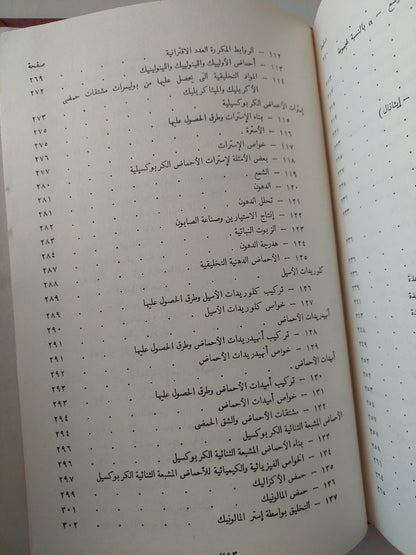 صفحة
١١٢ – الروابط المكررة العدد الاقترانية
١١٣ – أحماض الأولييك واللينولييك واللينولينيك ٢٦٩
١١٤ – المواد التخليقية التى يحصل عليها من بوليمرات مشتقات حمضى
الأكريليك والميثاكريليك ٢٧٢
إسترات الأحماض الكربوكسيلية ٢٧٣
١١٥ – بناء الإسترات وطرق الحصول عليها ٢٧٥
١١٦ – الأسترة ٢٧٥
١١٧ – خواص الإسترات ٢٧٧
١١٨ – بعض الأمثلة لإسترات الأحماض الكربوكسيلية
١١٩ – الشمع ٢٨٠
١٢٠ – الدهون
١٢١ – تحلل الدهون ٢٨١
١٢٢ – إنتاج الاستيارين وصناعة الصابون ٢٨٢
١٢٣ – الزيوت النباتية ٢٨٣
١٢٤ – هدرجة الدهون ٢٨٤
١٢٥ – الأحماض الدهنية التخليقية ٢٨٧
كلوريدات الأسيل
١٢٦ – تركيب كلوريدات الأسيل وطرق الحصول عليها ٢٨٩
١٢٧ – خواص كلوريدات الأسيل ٢٨٩
أنهيدريدات الأحماض ٢٩٠
١٢٨ – تركيب أنهيدريدات الأحماض وطرق الحصول عليها ٢٩١
١٢٩ – خواص أنهيدريدات الأحماض ٢٩٢
أميدات الأحماض
١٣٠ – تركيب أميدات الأحماض وطرق الحصول عليها ٢٩٣
١٣١ – خواص أميدات الأحماض ٢٩٣
١٣٢ – مشتقات الأحماض والشق الحمضى ٢٩٤
الأحماض المشبعة الثنائية الكربوكسيل ٢٩٤
١٣٣ – بناء الأحماض المشبعة الثنائية الكربوكسيل ٢٩٦
١٣٤ – الخواص الفيزيائية والكيميائية للأحماض المشبعة الثنائية الكربوكسيل ٢٩٧
١٣٥ – حمض الأكزاليك ٢٩٩
١٣٦ – حمض المالونيك ٣٠١
١٣٧ – التخليق بواسطة إستر المالونيك ٣٠٢